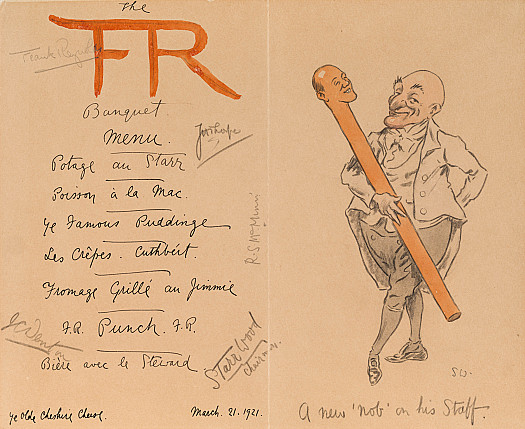 The
FR
Frank Reynolds
Banquet.
Menu.
Potage au Starr
Poisson à la Mac.
Ye Famous Puddinge
Les Crêpes. Cuthbert.
Fromage Grillé au Jimmie
F.R. Punch. F.R.
Bière avec le Steward
Starr Wood
Chairman.
Ye Olde Cheshire Cheese.
March. 21. 1921.
S.W.
A new 'nob' on his Staff.